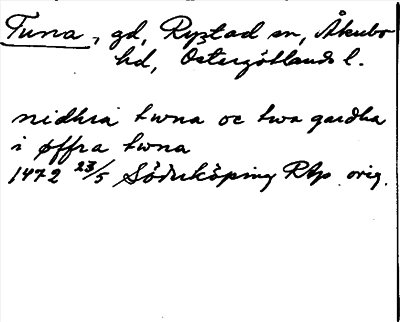 Tuna, gd, Rystad sn, Åkerbo
hd, Östergötlands l.
nidhra twna oc twa gardha
i øffra twna
1472 23/5 Söderköping RAp orig.